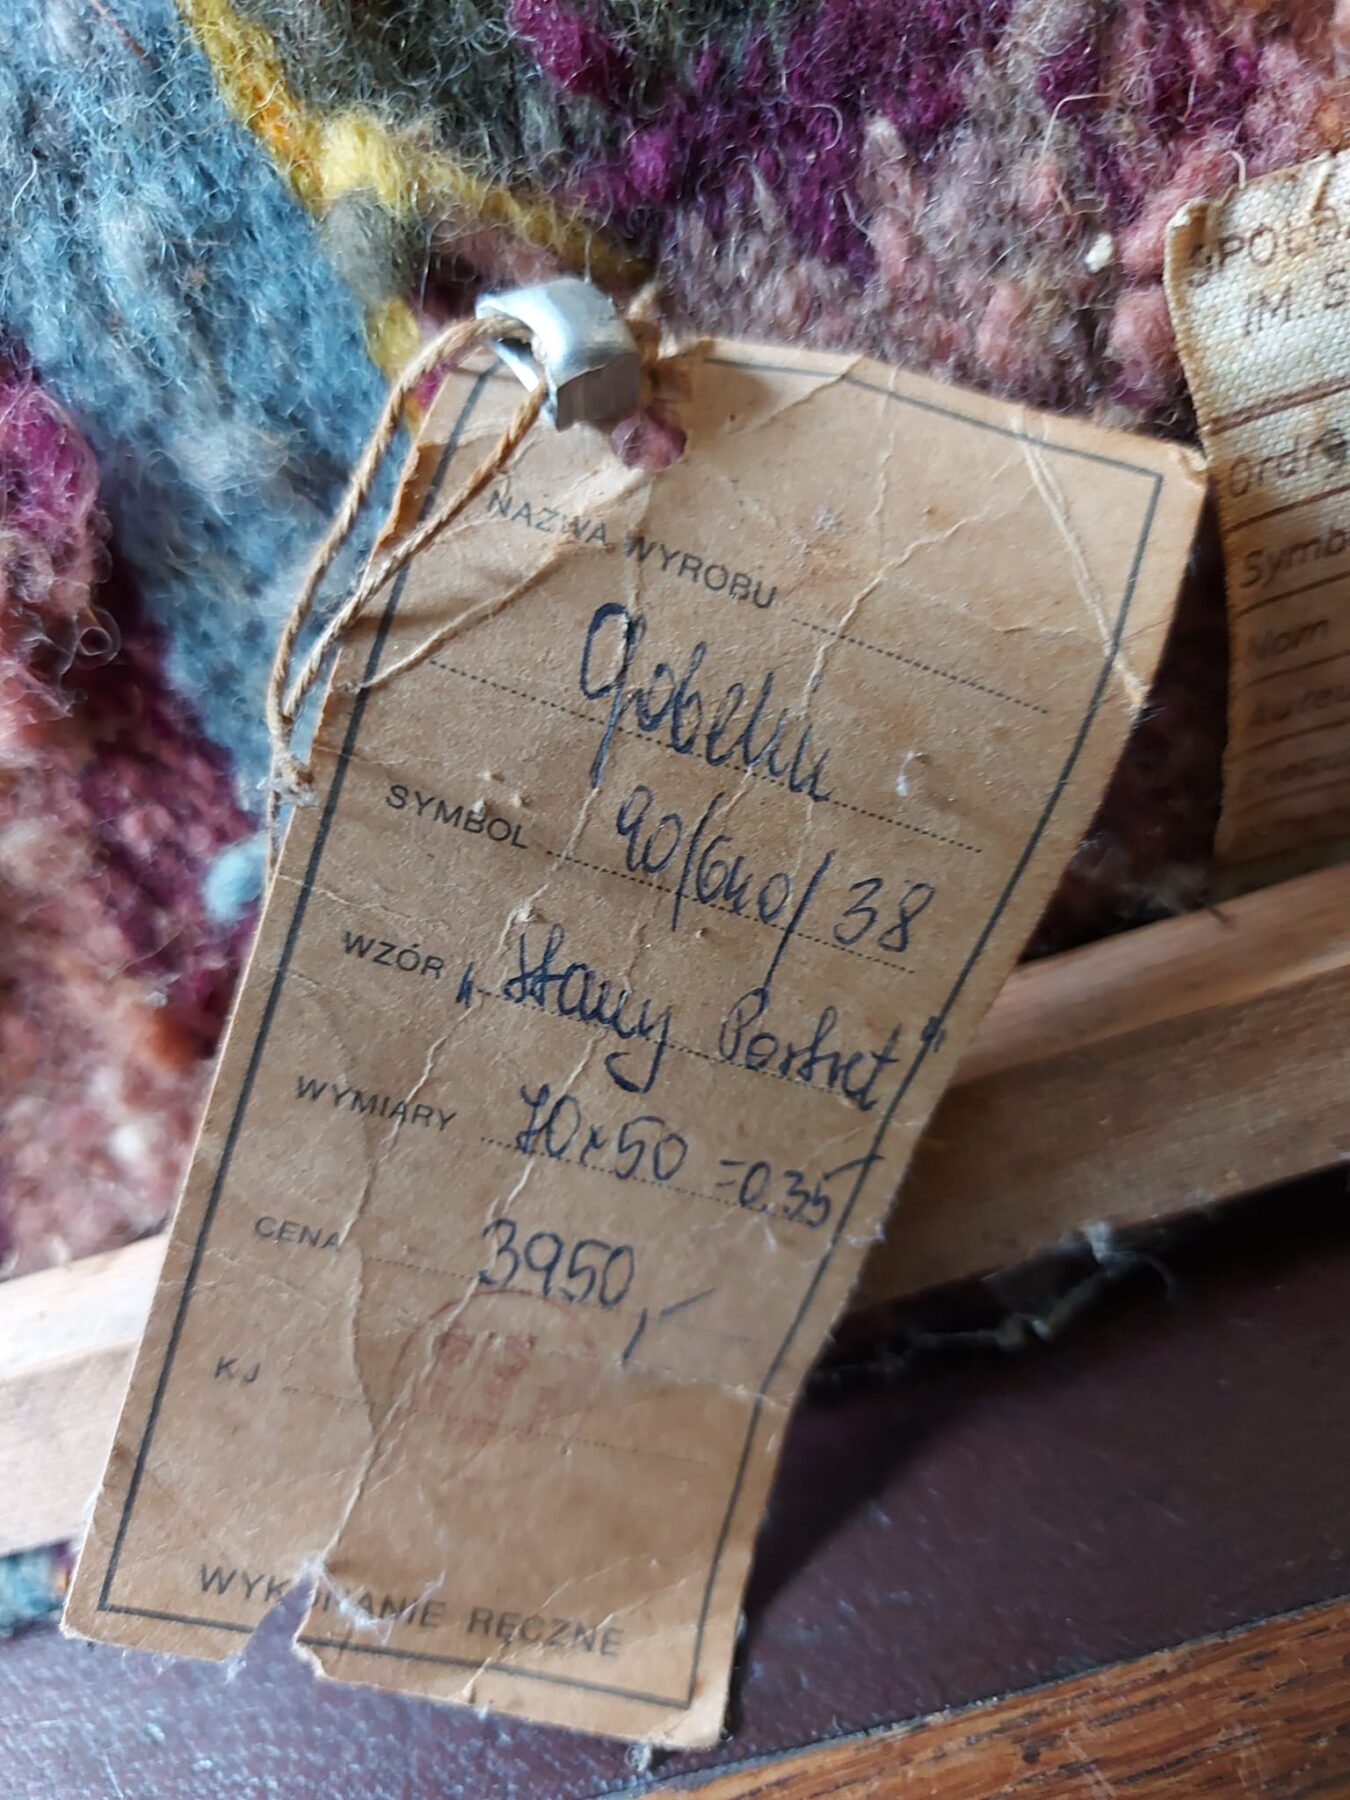 NAZWA WYROBU
Gobelin
SYMBOL 90/640/38
WZÓR „Stary Portret"
WYMIARY 70x50 =0,35
CENA 3950,-
KJ
WYKONANIE RĘCZNE
IM. S
Symb
Nom